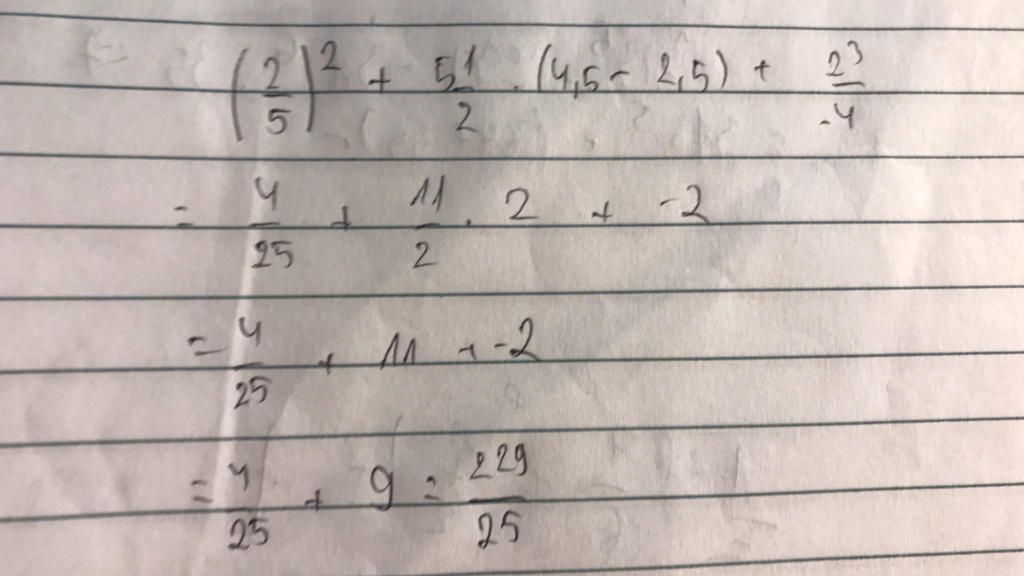 (2/5)² + 5 1/2 . (4,5 - 2,5) + 2³/-4
= 4/25 + 11/2 . 2 + -2
= 4/25 + 11 + -2
= 4/25 + 9 = 229/25